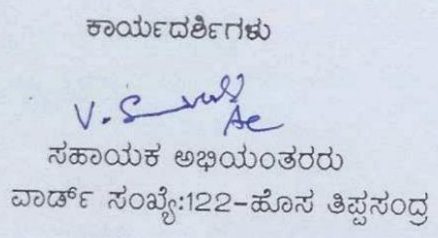 ಕಾರ್ಯದರ್ಶಿಗಳು
V. S
AE
ಸಹಾಯಕ ಅಭಿಯಂತರರು
ವಾರ್ಡ್ ಸಂಖ್ಯೆ:122-ಹೊಸ ತಿಪ್ಪಸಂದ್ರ